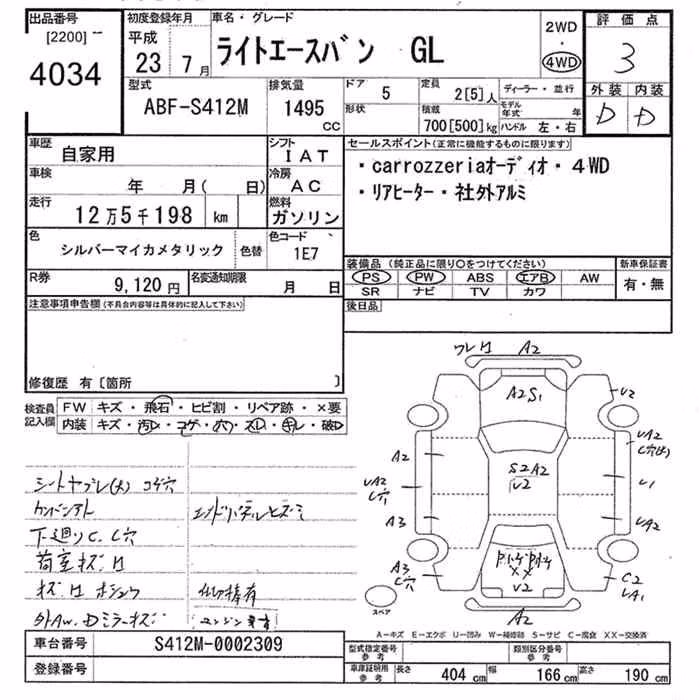 出品番号 初度登録年月 車名・グレード 2WD 評価点
[2200] 平成 ライトエースバン GL ・ 3
4034 23 7月 4WD 外装 内装
型式 排気量 ドア 5 定員 2[5]人 ディーラー・並行 D D
ABF-S412M 1495 形状 積載 モデル年式 年
CC 700[500]kg ハンドル 左・右
車歴 自家用 シフト IAT セールスポイント(正常に機能するものに限ります)
車検 年 月( 日) 冷房 AC ・carrozzeriaオーディオ・4WD
走行 12万5千198 km 燃料 ガソリン ・リアヒーター・社外アルミ
色 シルバーマイカメタリック 色替 色コード 1E7
装備品 (純正品に限り○をつけてください) 新車保証書
R券 9,120円 名変通知期限 月 日 PS PW ABS エアB AW 有・無
SR ナビ TV カワ
注意事項申告欄(不具合内容等は具体的に記入して下さい) 後日品
修復歴 有〔箇所 〕
検査員記入欄 FW キズ・飛石・ヒビ割・リペア跡・×要
内装 キズ・汚レ・コゲ・穴・スレ・キレ・破レ
ワレ A2
A2S1
U2
A2
UA2
C穴
S2A2
U2
UA2
U1
A3
UA2
A3
C穴
U2
C2
UA1
A2
スペア
シートヤブレ(大) コゲ穴
下廻りC、C穴
荷室キズ
外AW、Dミラーキズ
A－キズ E－エクボ U－凹み W－補修跡 S－サビ C－腐食 XX－交換済
車台番号 S412M-0002309 型式指定番号 参考 類別区分番号 参考
登録番号 車庫証明用 参考 長さ 404cm 幅 166cm 高さ 190cm